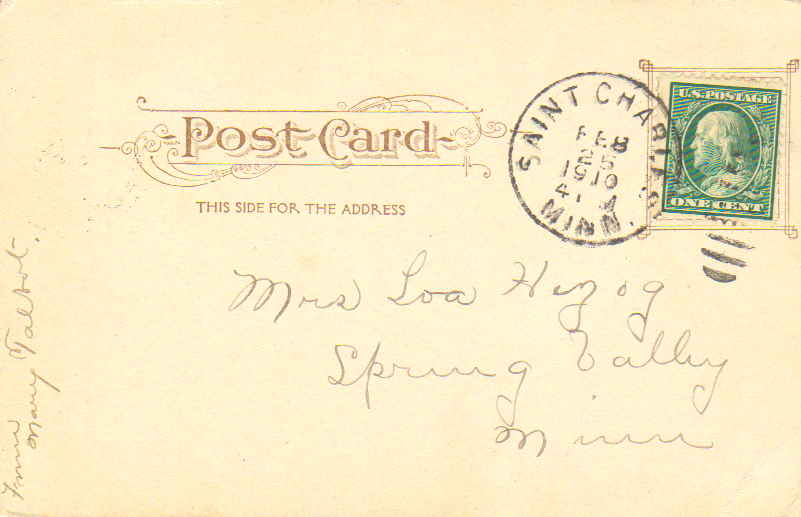 Post Card
THIS SIDE FOR THE ADDRESS
SAINT CHARLES
FEB
25
1910
MINN.
U.S. POSTAGE
ONE CENT
Mrs Loa Herzog
Spring Valley
Minn
From
Mary Talbot.